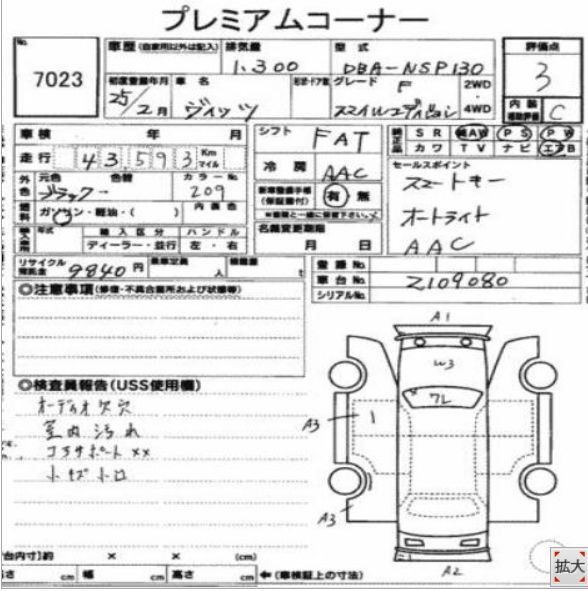 プレミアムコーナー
No. 7023
車歴 (自家用以外は記入) 排気量 1.300 型式 DBA-NSP130 評価点 3
初度登録年月 25/2月 車名 ヴィッツ 形状・ドア数 グレード F スマイルエディション 2WD・4WD 内装補助評価 C
車検 年 月 シフト FAT 純正品 SR 純AW PS PW
カワ TV ナビ エアB
走行 43,593 Km マイル 冷房 AAC セールスポイント
外色 元色 ブラック 色替 カラーNo. 209 新車整備手帳(保証書付) 有・無 スマートキー
燃料 ガソリン・軽油・( ) 内装色 オートライト
輸入車用 年式 輸入区分 ハンドル 名義変更期限 AAC
ディーラー・並行 左・右 月 日
リサイクル預託金 9840円 乗車定員 人 積載量 t 登録No.
車台No. Z109080
シリアルNo.
◎注意事項(修復・不具合箇所および状態等)
◎検査員報告(USS使用欄)
オーディオ欠穴
室内汚れ
コアサポート××
小キズ小凹
A1
W3
×
フレ
A3
A3
A2
台内寸]約 × × (cm)
高さ cm 幅 cm 高さ cm ←(車検証上の寸法)
拡大